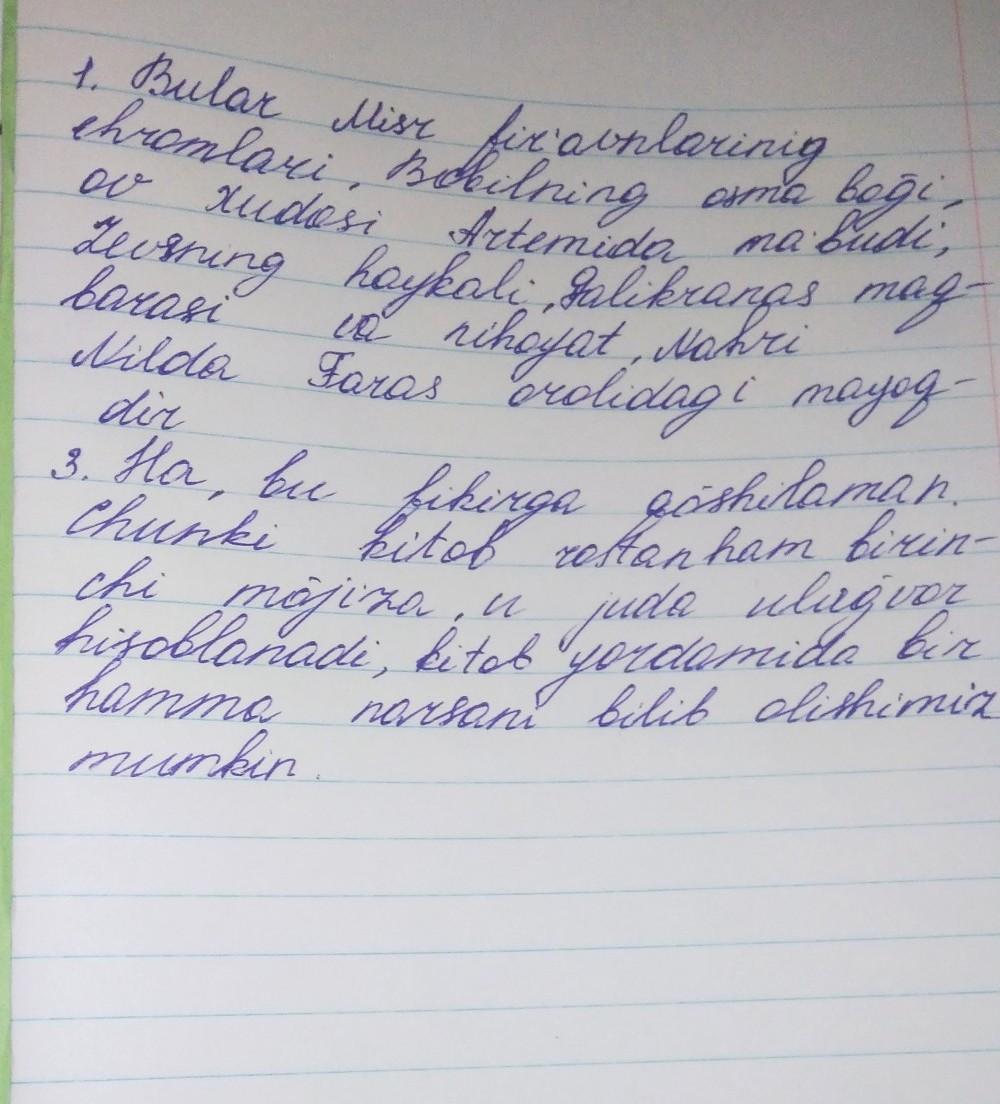 1. Bular Misr fir'avnlarinig
ehromlari, Bobilning osma bog̃i,
ov xudosi Artemida ma'budi,
Zevsning haykali, Galikranas maq-
barasi va nihoyat, Nahri
Nilda Faras orolidagi mayoq-
dir
3. Ha, bu fikirga qõshilaman.
Chunki kitob rostanham birin-
chi mõjiza, u juda ulug̃vor
hisoblanadi, kitob yordamida bir
hamma narsani bilib olishimiz
mumkin.